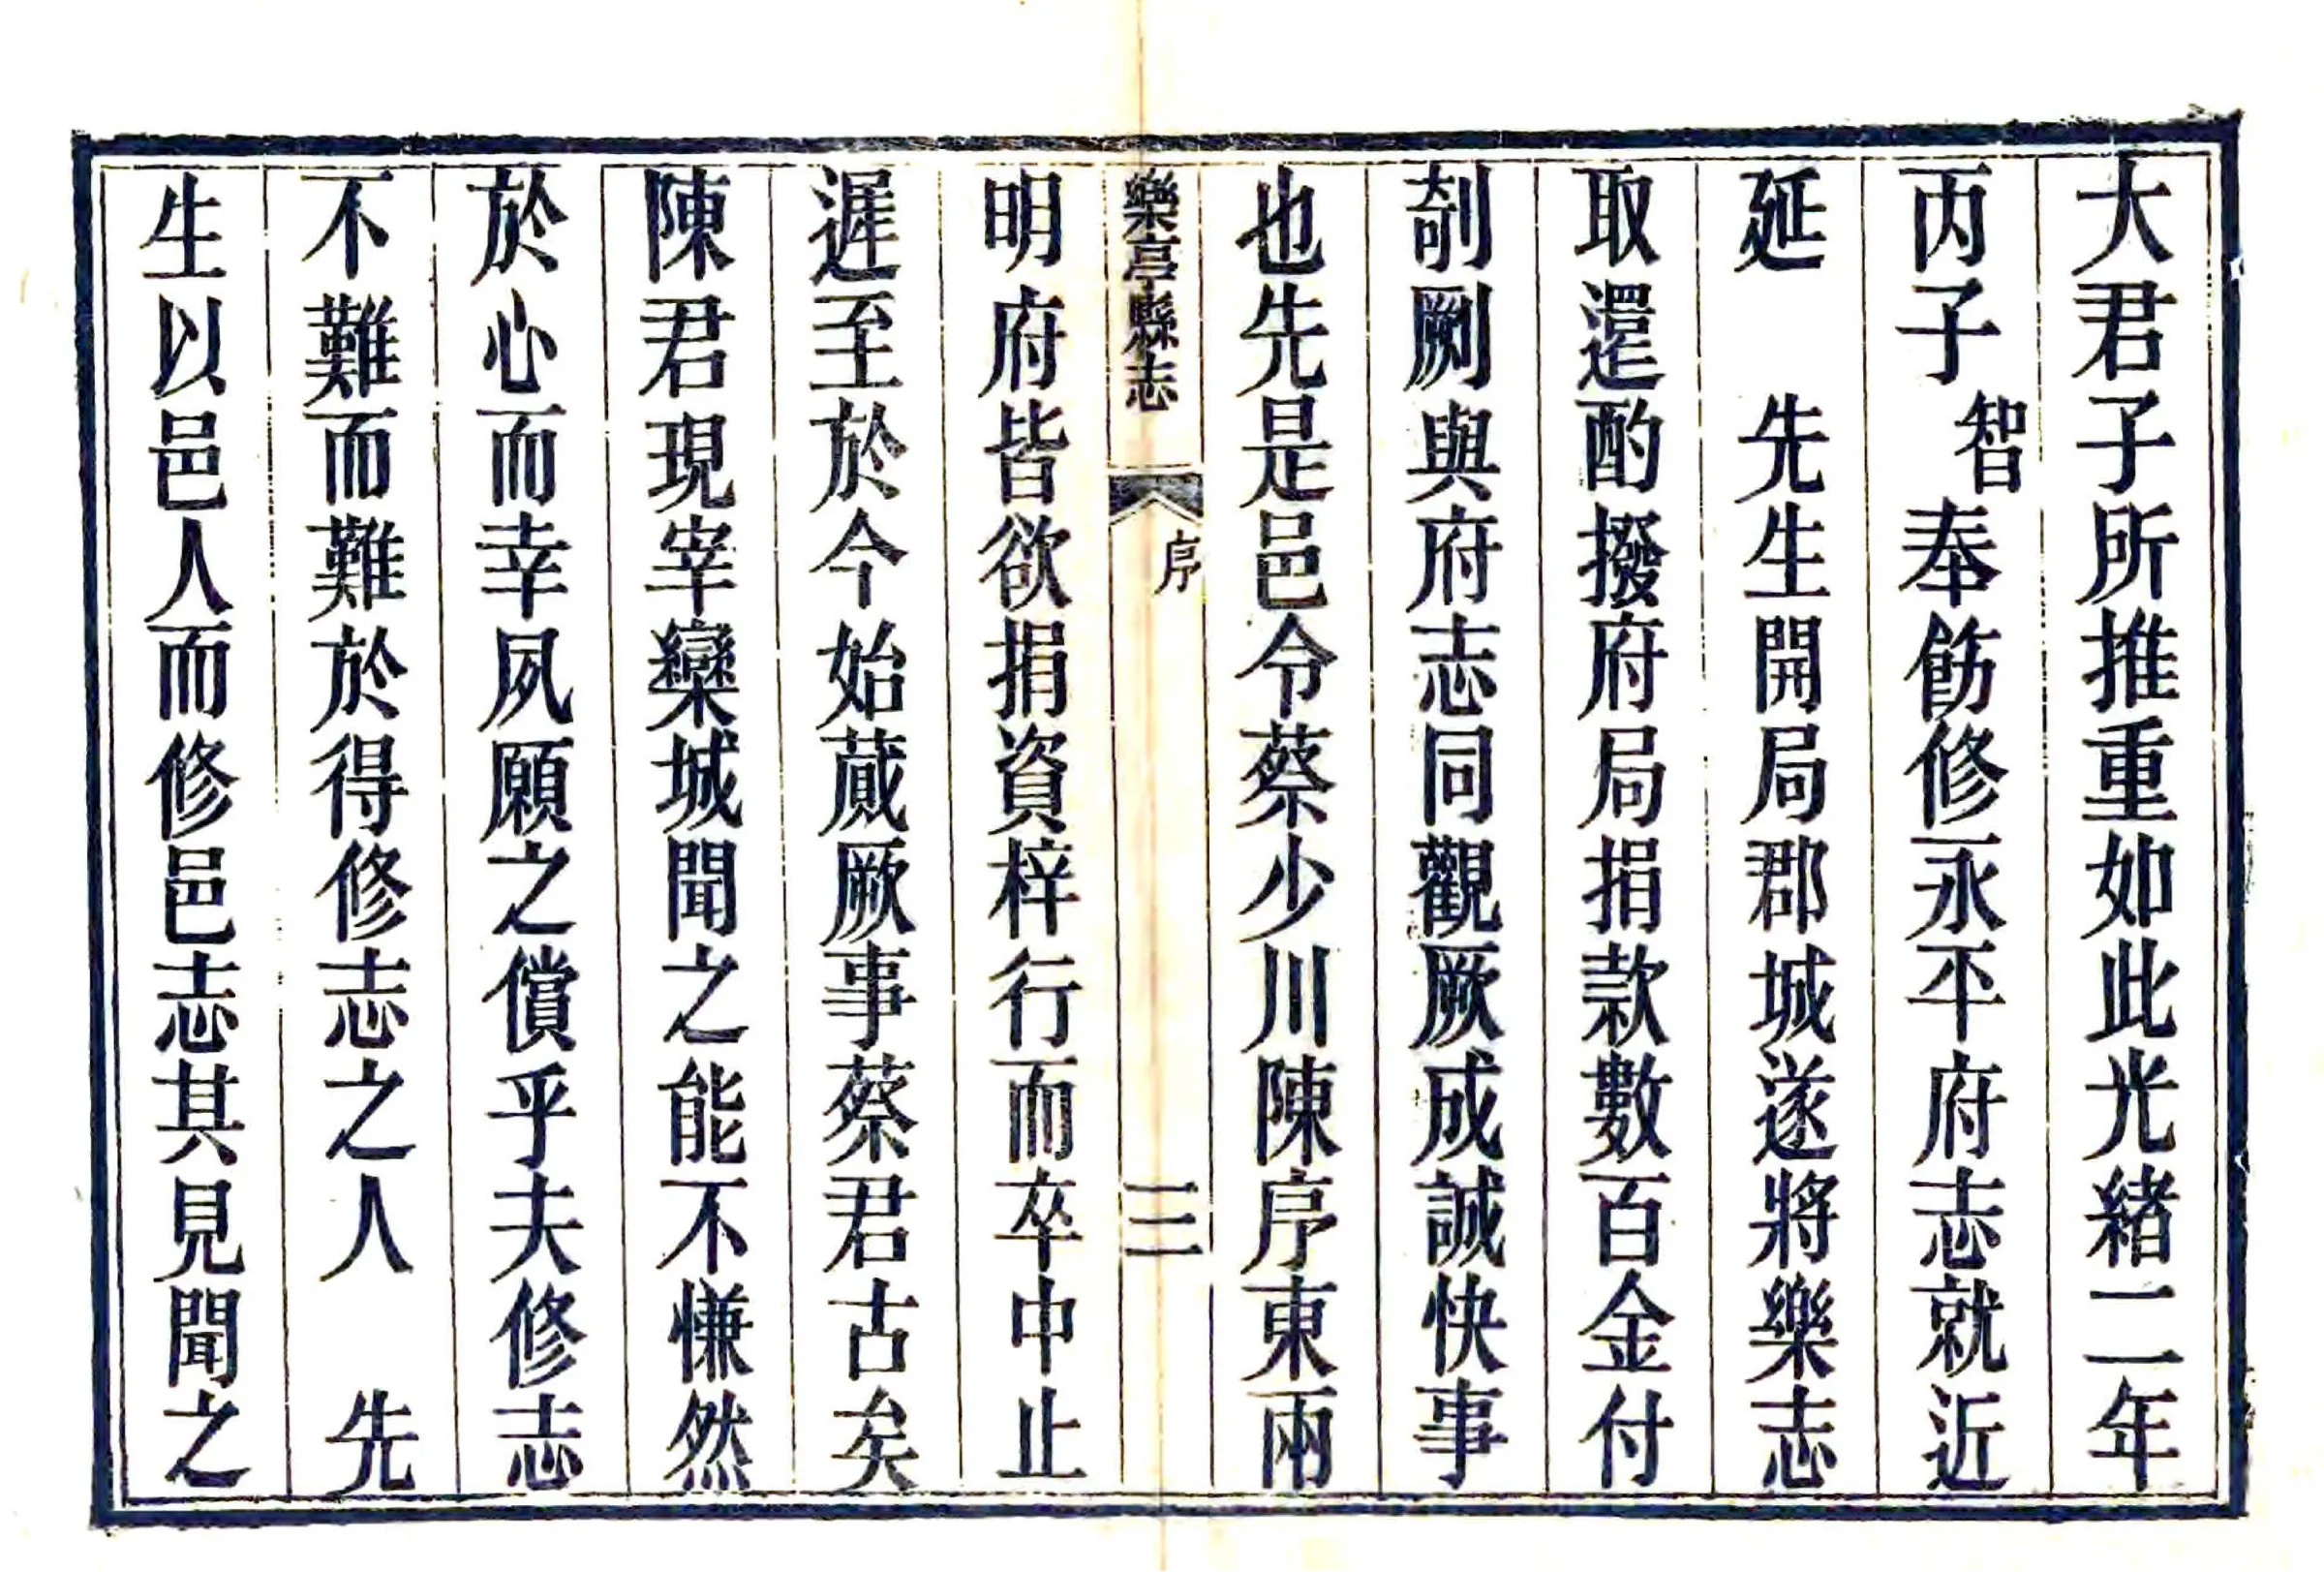 大君子所推重如此光緒二年
丙子智奉飭修永平府志就近
延　先生開局郡城遂將樂志
取還酌撥府局捐款數百金付
剞劂與府志同觀厥成誠快事
也先是邑令蔡少川陳序東兩
樂亭縣志　序　三
明府皆欲捐資梓行而卒中止
遲至於今始蕆厥事蔡君古矣
陳君現宰欒城聞之能不慊然
於心而幸夙願之償乎夫修志
不難而難於得修志之人　先
生以邑人而修邑志其見聞之